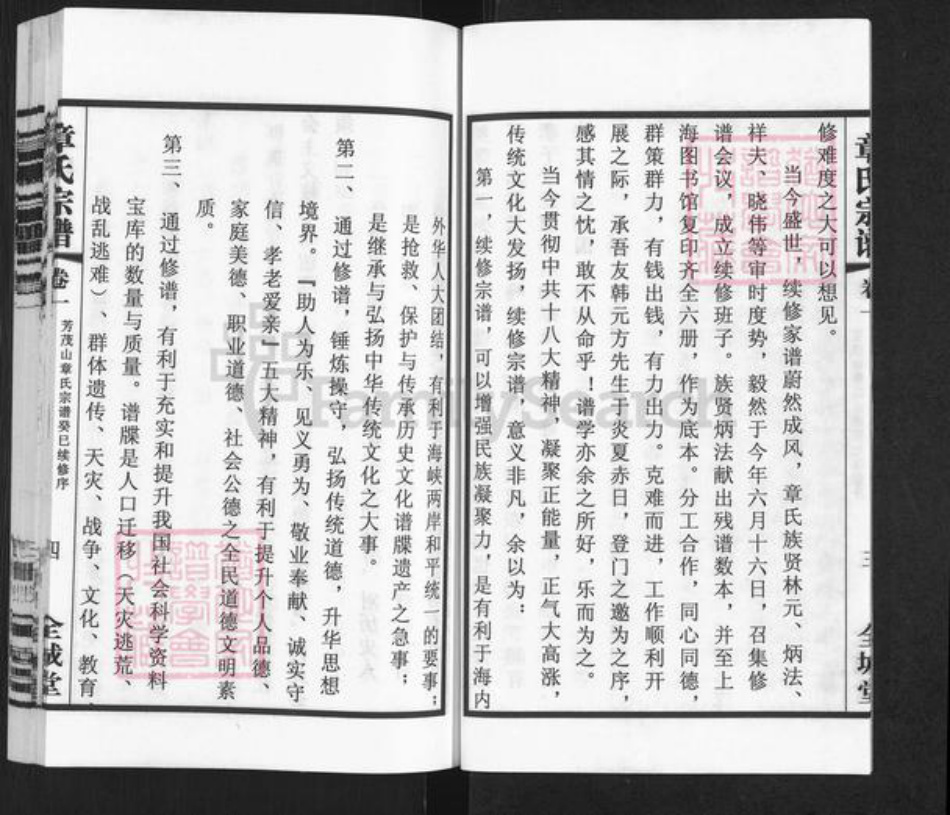 章氏宗谱
卷一
三
全城堂
修难度之大可以想见。
当今盛世，续修家谱蔚然成风，章氏族贤林元、炳法、
祥夫、晓伟等审时度势，毅然于今年六月十六日，召集修
谱会议，成立续修班子。族贤炳法献出残谱数本，并至上
海图书馆复印齐全六册，作为底本。分工合作，同心同德，
群策群力，有钱出钱，有力出力。克难而进，工作顺利开
展之际，承吾友韩元方先生于炎夏赤日，登门之邀为之序，
感其情之忱，敢不从命乎！谱学亦余之所好，乐而为之。
当今贯彻中共十八大精神，凝聚正能量，正气大高涨，
传统文化大发扬，续修宗谱，意义非凡，余以为：
第一，续修宗谱，可以增强民族凝聚力，是有利于海内
外华人大团结，有利于海峡两岸和平统一的要事；
是抢救、保护与传承历史文化谱牒遗产之急事；
是继承与弘扬中华传统文化之大事。
第二、通过修谱，锤炼操守，弘扬传统道德，升华思想
境界。「助人为乐、见义勇为、敬业奉献、诚实守
信、孝老爱亲」五大精神，有利于提升个人品德、
家庭美德、职业道德、社会公德之全民道德文明素
质。
第三、通过修谱，有利于充实和提升我国社会科学资料
宝库的数量与质量。谱牒是人口迁移（天灾逃荒、
战乱逃难）、群体遗传、天灾、战争、文化、教育、
章氏宗谱
卷一
芳茂山章氏宗谱癸巳续修序
四
全城堂
FamilySearch